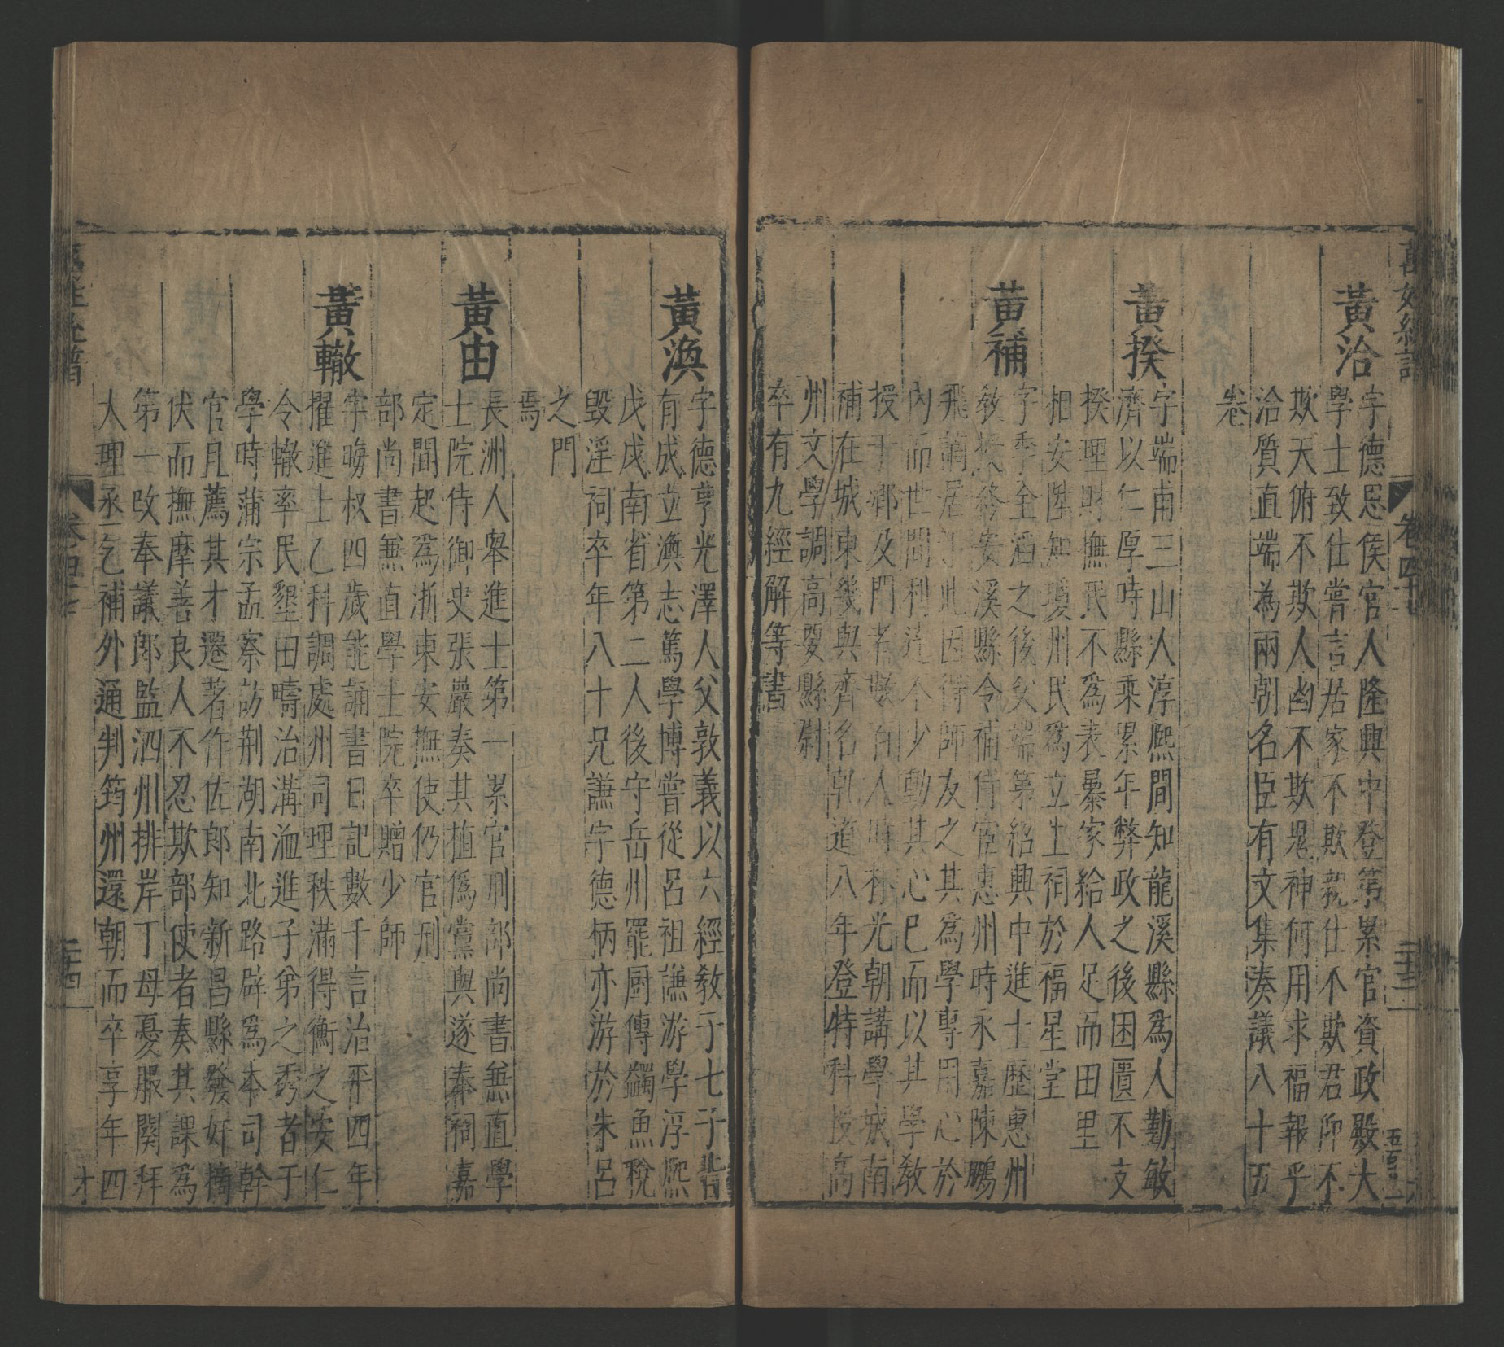 萬姓統譜
卷四十七
二十三
黃洽
字德思侯官人隆興中登第累官資政殿大
學士致仕嘗言居家不欺親仕不欺君仰不
欺天俯不欺人幽不欺鬼神何用求福報乎
洽質直端為兩朝名臣有文集奏議八十五
卷
黃揆
字端甫三山人淳熙間知龍溪縣為人勤敏
濟以仁厚時縣乘累年弊政之後困匱不支
揆理財撫民不爲表暴家給人足而田里
相安陞知瓊州民爲立生祠於福星堂
黃補
字季全洎之後父端第紹興中進士歷惠州
教授終安溪縣令補侍官惠州時永嘉陳鵬
飛謫居於此因得師友之其爲學專用心於
內而世間利達不少動其心已而以其學教
授于鄉及門者數百人時林光朝講學城南
補在城東幾與齊名乾道八年登特科授高
州文學調高要縣尉
卒有九經解等書
黃渙
字德亨光澤人父敦義以六經教子七子皆
有成立渙志篤學博嘗從呂祖謙游學淳熙
戊戌南省第二人後守岳州罷厨傳蠲魚稅
毀淫祠卒年八十兄謙字德柄亦游於朱呂
之門
焉
黃由
長洲人舉進士第一累官刑部尚書兼直學
士院侍御史張嚴奏其植爲黨與遂奉祠嘉
定間起爲浙東安撫使仍官刑
部尚書兼直學士院卒贈少師
黃轍
字晞叔四歲能誦書日記數千言治平四年
擢進士乙科調處州司理秩滿得衡之安仁
令轍率民墾田疇治溝洫進子弟之秀者于
學時蒲宗孟察訪荆湖南北路辟爲本司幹
官且薦其才遷著作佐郎知新昌縣發奸擿
伏而撫摩善良人不忍欺部使者奏其課爲
第一改奉議郎監泗州排岸丁母憂服闋拜
大理丞乞補外通判筠州還朝而卒享年四
才
卷四十七
二十四